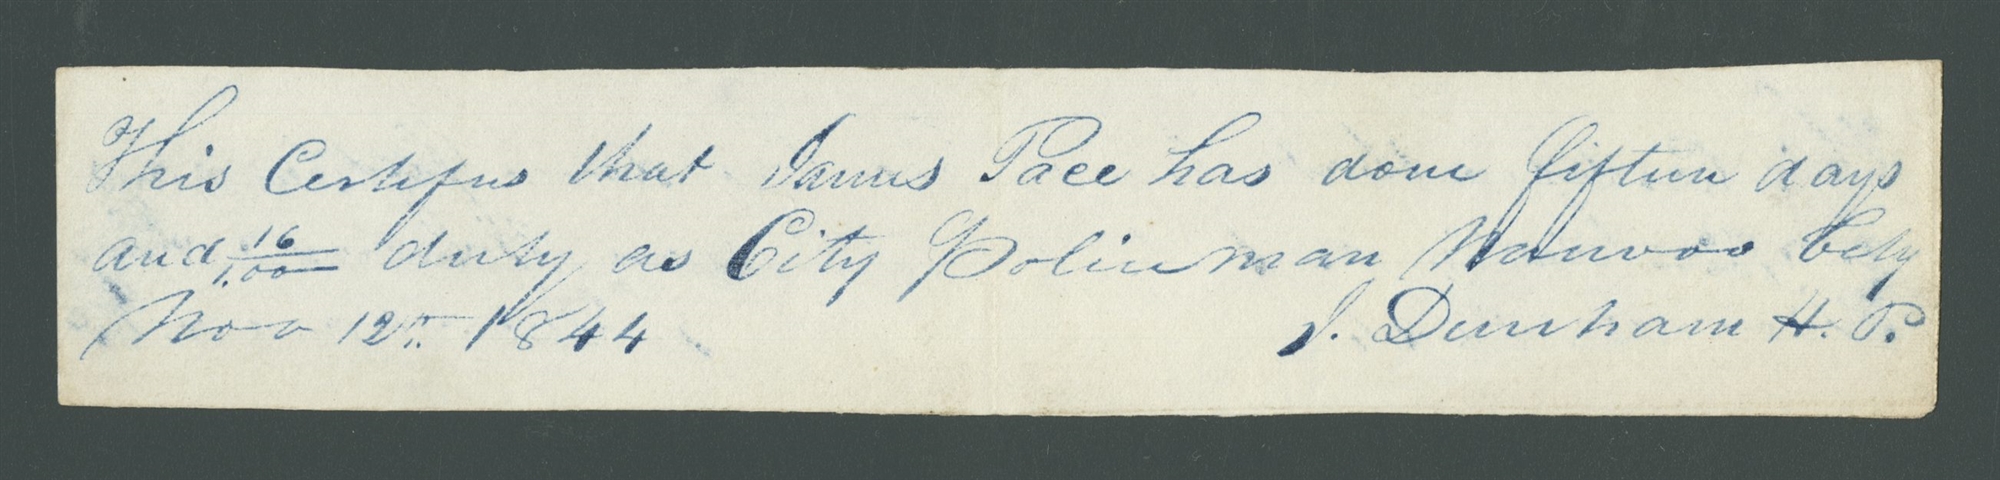 This Certifies that James Pace has done fifteen days
and 16/100 duty as City Policeman Nauvoo City
Nov 12th 1844 J. Dunham H. P.